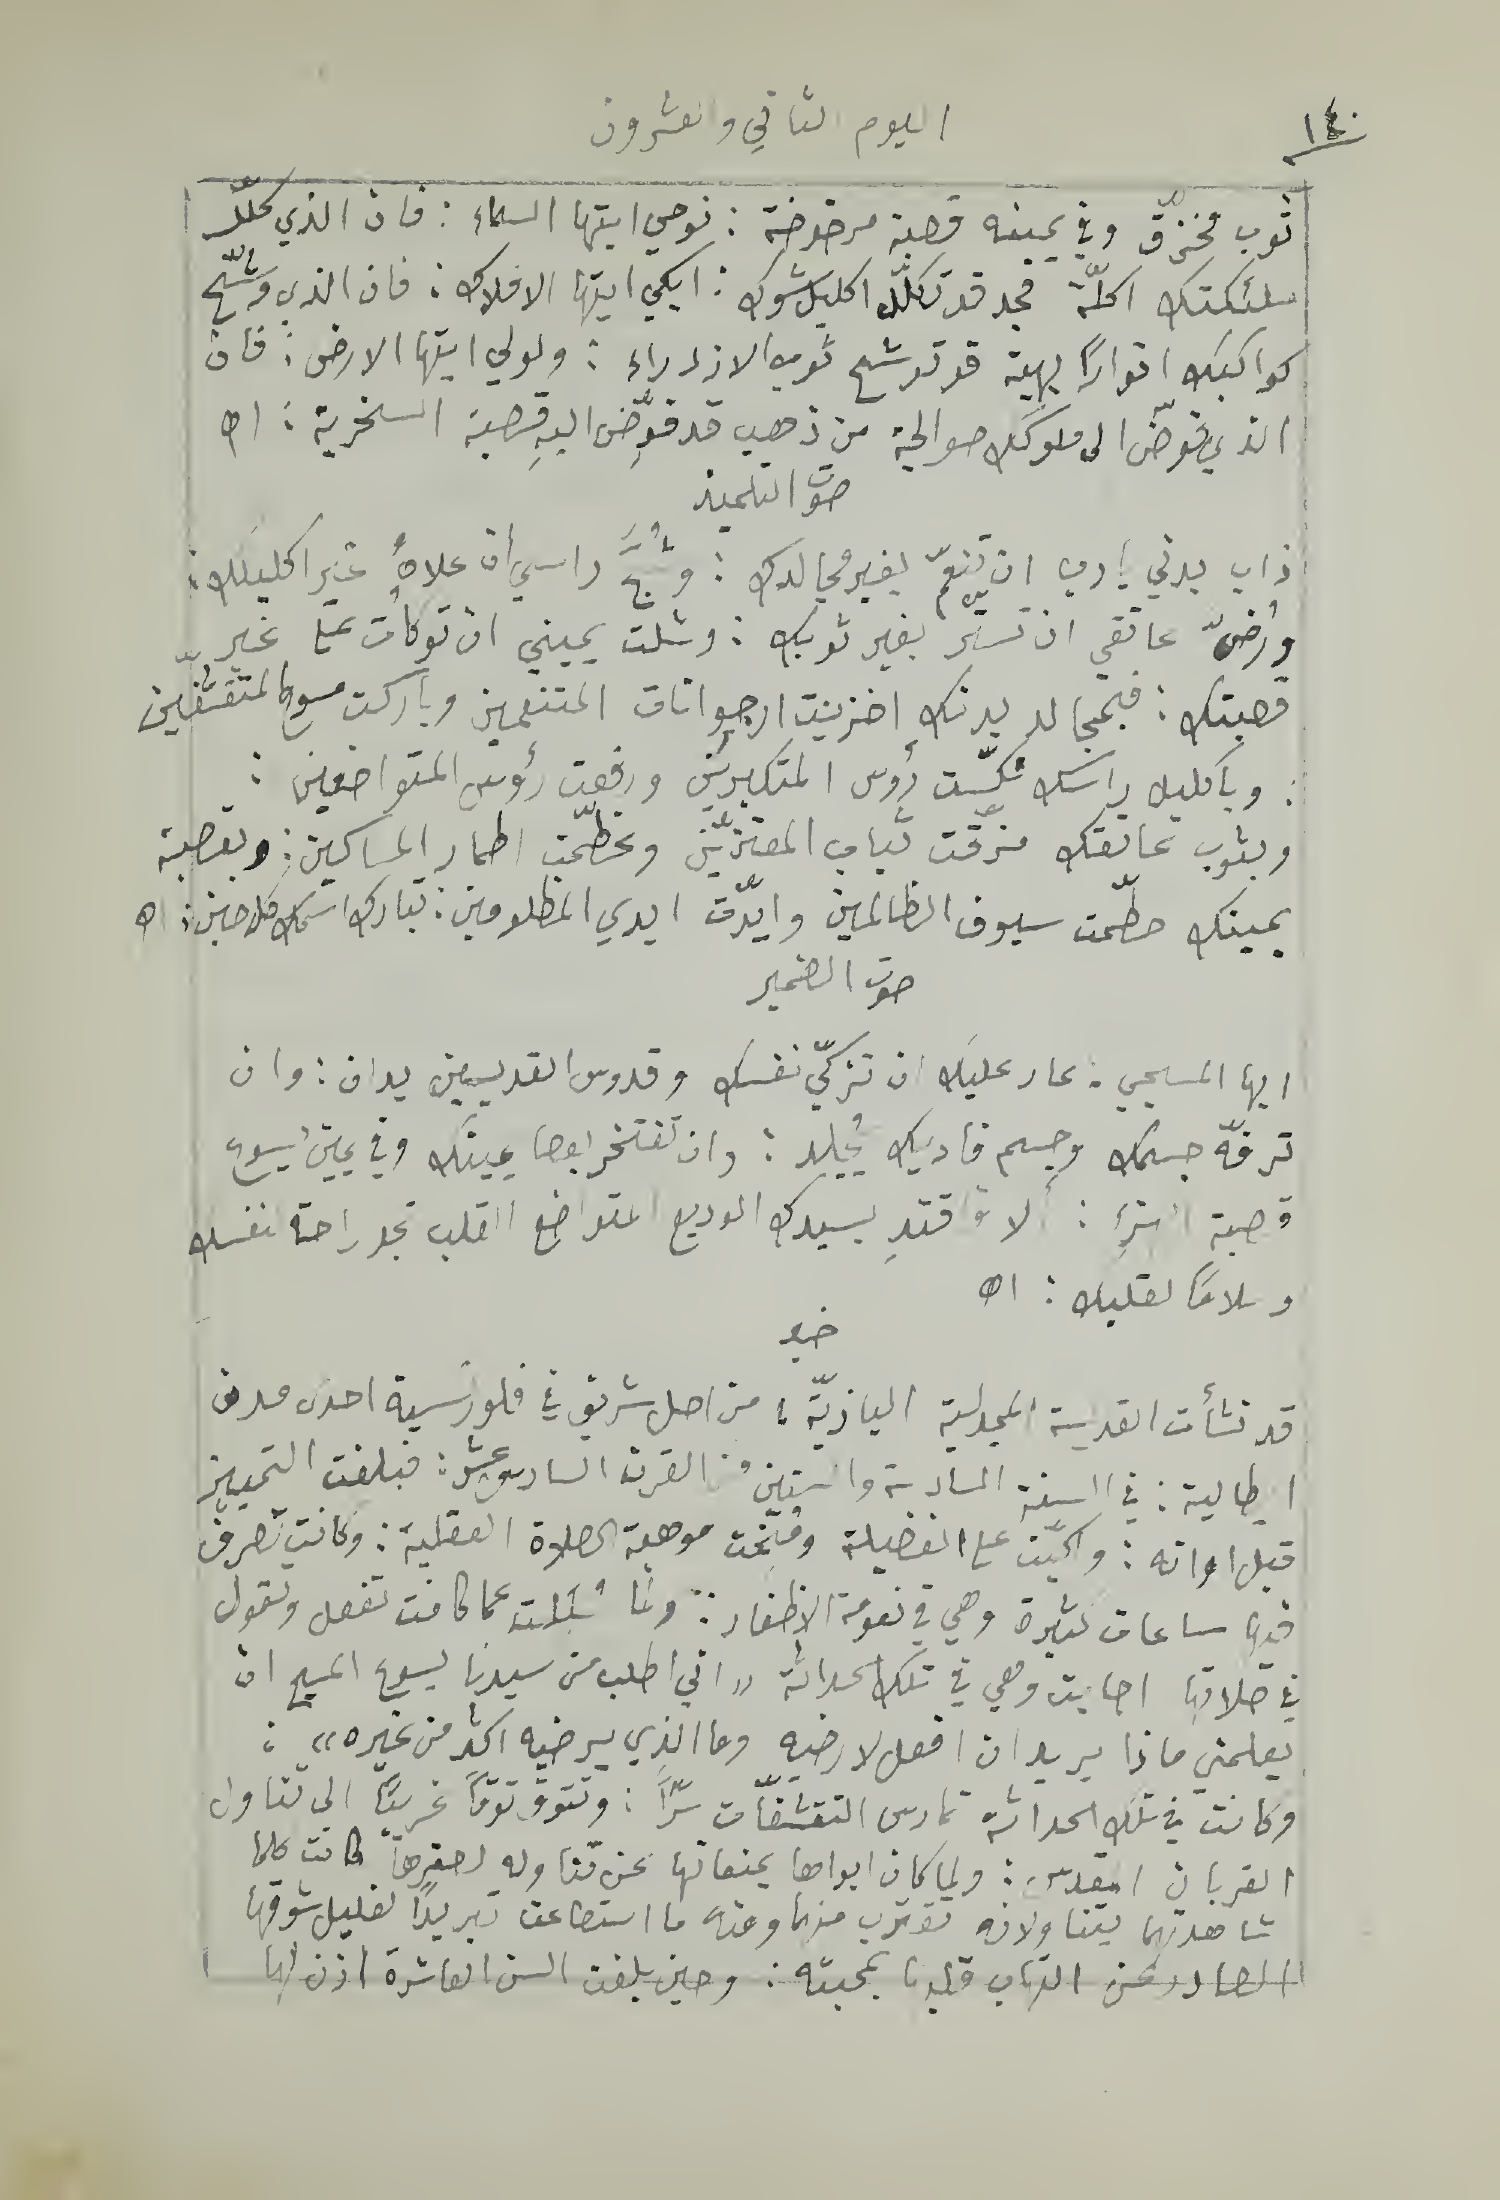 ١٤٠
اليوم الثاني والعشرون
ثوب مخزّق وفي يمينه قصبة مرضوضة : نوحي ايتها السماء : فان الذي كلّل
ملئكتك اكلّة مجد قد تكلّل اكليل شوك : ابكي ايتها الافلاك : فان الذي وشّح
كواكبك انوارًا بهية قد توشح ثوب الازدراء : ولولي ايتها الارض : فان
الذي فوّض الى ملوكك صوالجة من ذهب قد فوِّض اليهِ قصبة السخرية : اه
صوت التلميذ
ذاب بدني يا رب ان تنعّم بغير مجالدك : وشُجَّ راسي ان علاهُ غير اكليلك :
ورُضّ عاتقي ان تستّر بغير ثوبك : وشلت يميني ان توكأت على غير
قصبتك : فبمجالد بدنك اخزيت ارجوانات المتنعمين وباركت مسوح المتقشّفين
: وباكليل راسك نكّست رُوس المتكبرين ورفعت رؤوس المتواضعين :
وبثوب عاتقك مزّقت ثياب المعتزّين وعظّمت اطمار المساكين : وبقصبة
يمينك حطّمت سيوف الظالمين وايّدت ايدي المظلومين : تبارك اسمك كل حين : اه
صوت الضمير
ايها المسيحي : عار عليك ان تزكّي نفسك وقدوس القديسين يدان : وان
ترفّه جسمك وجسم فاديك يُجلد : وان تفتخر بعصا يمينك وفي يمين يسوع
قصبة الهزء : ألا فاقتدِ بسيدك الوديع المتواضع القلب تجد راحة لنفسك
وسلامًا لقلبك : اه
خبر
قد نشأت القديسة المجدلية البازيّة : من اصل شريف في فلورنسية احدى مدن
ايطالية : في السنة السادسة والستين من القرن السادس عشر : فبلغت التمييز
قبل اوانه : واكبّت على الفضيلة ومُنحت موهبة الصلاة العقلية : وكانت تصرف
فيها ساعات كثيرة وهي في نعومة الاظفار : ولمّا سُئلت عما كانت تفعل وتقول
في صلاتها اجابت وهي في تلك الحداثة « اني اطلب من سيدنا يسوع المسيح ان
يعلمني ماذا يريد ان افعل لارضيه وما الذي يرضيه اكثر من غيره » :
وكانت في تلك الحداثة تمارس التقشّفات سرًّا : وتتوق توقًا غريبًا الى تناول
القربان المقدس : ولما كان ابواها يمنعانها عن تناوله لصغرها كانت كلما
شاهدتهما يتناولانه تقترب منهما ومنه ما استطاعت تبريدًا لغليل شوقها
الصادر عن التهاب قلبها بمحبته : وحين بلغت السن العاشرة اذن لها